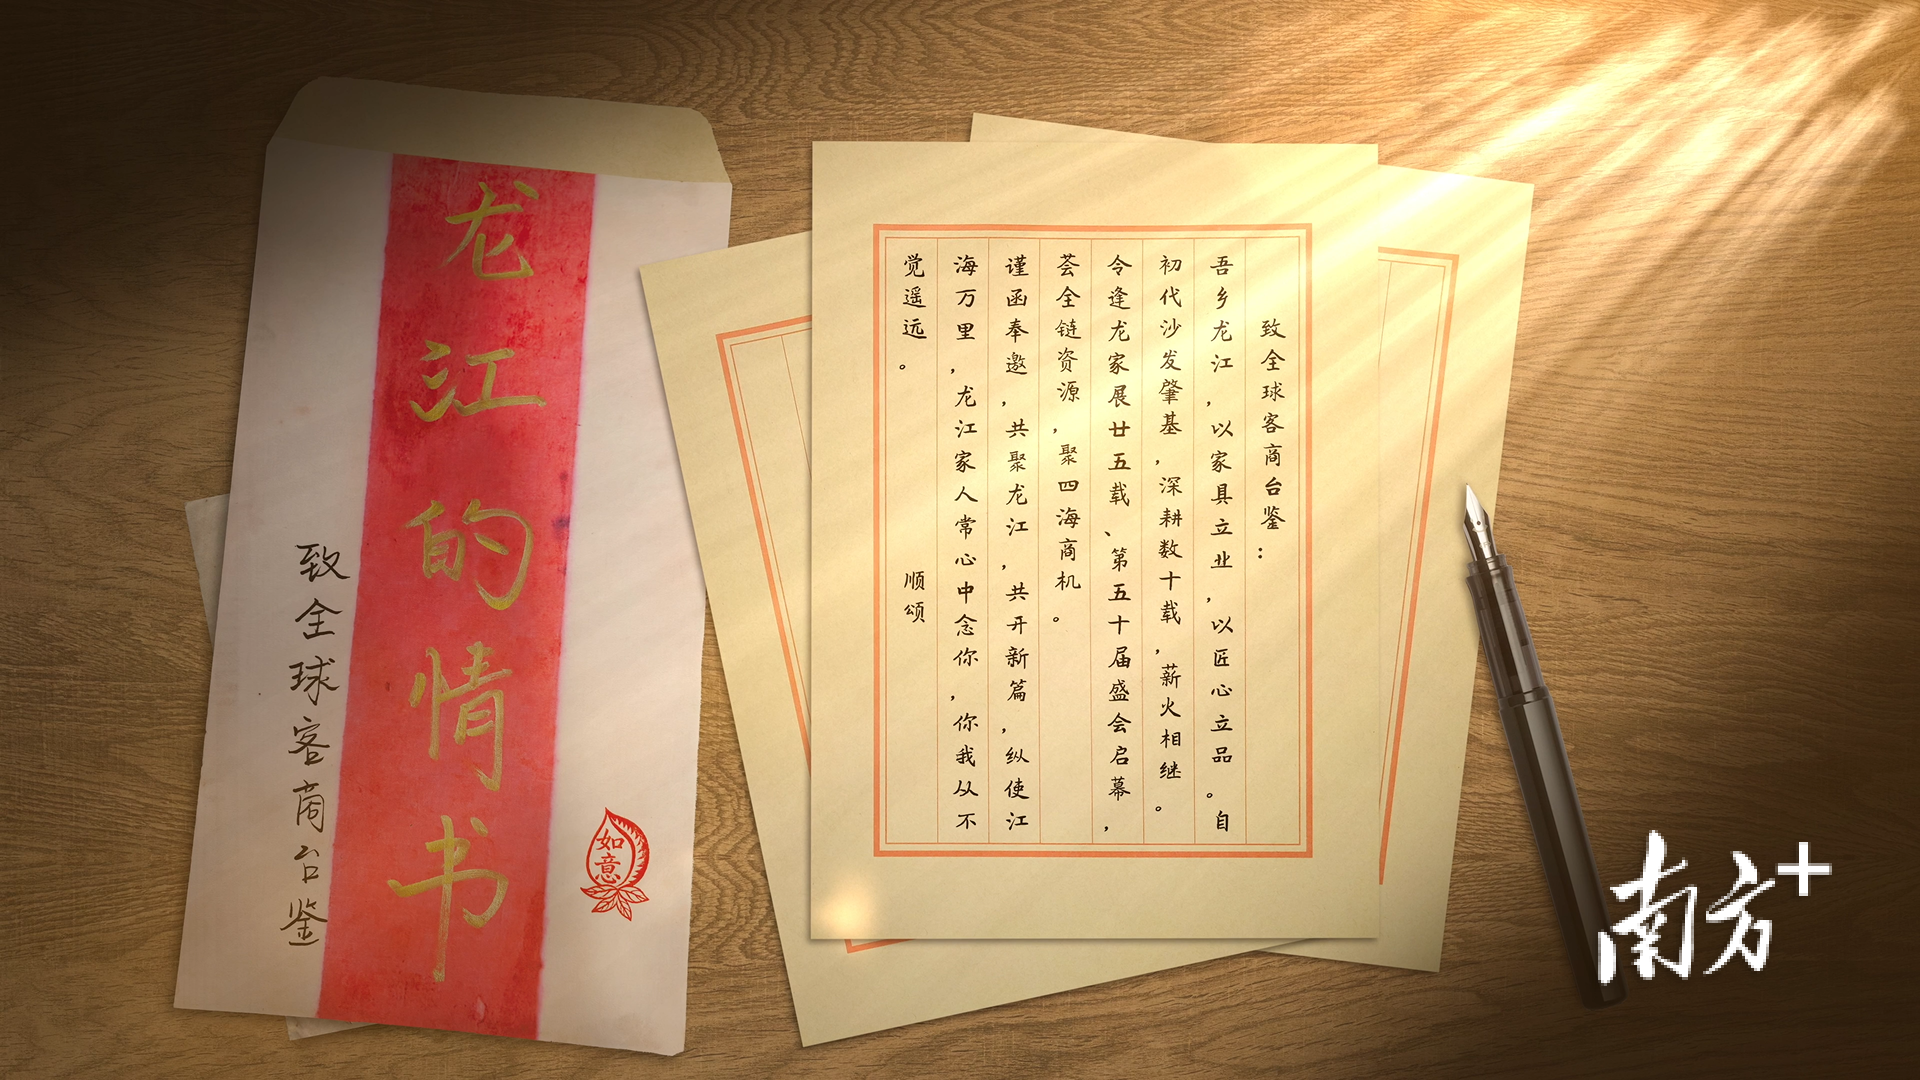 龙江的情书
致全球客商台鉴
如意
致全球客商台鉴:
吾乡龙江，以家具立业，以匠心立品。自
初代沙发肇基，深耕数十载，薪火相继。
令逢龙家展廿五载、第五十届盛会启幕，
荟全链资源，聚四海商机。
谨函奉邀，共聚龙江，共开新篇，纵使江
海万里，龙江家人常心中念你，你我从不
觉遥远。
顺颂
南方+